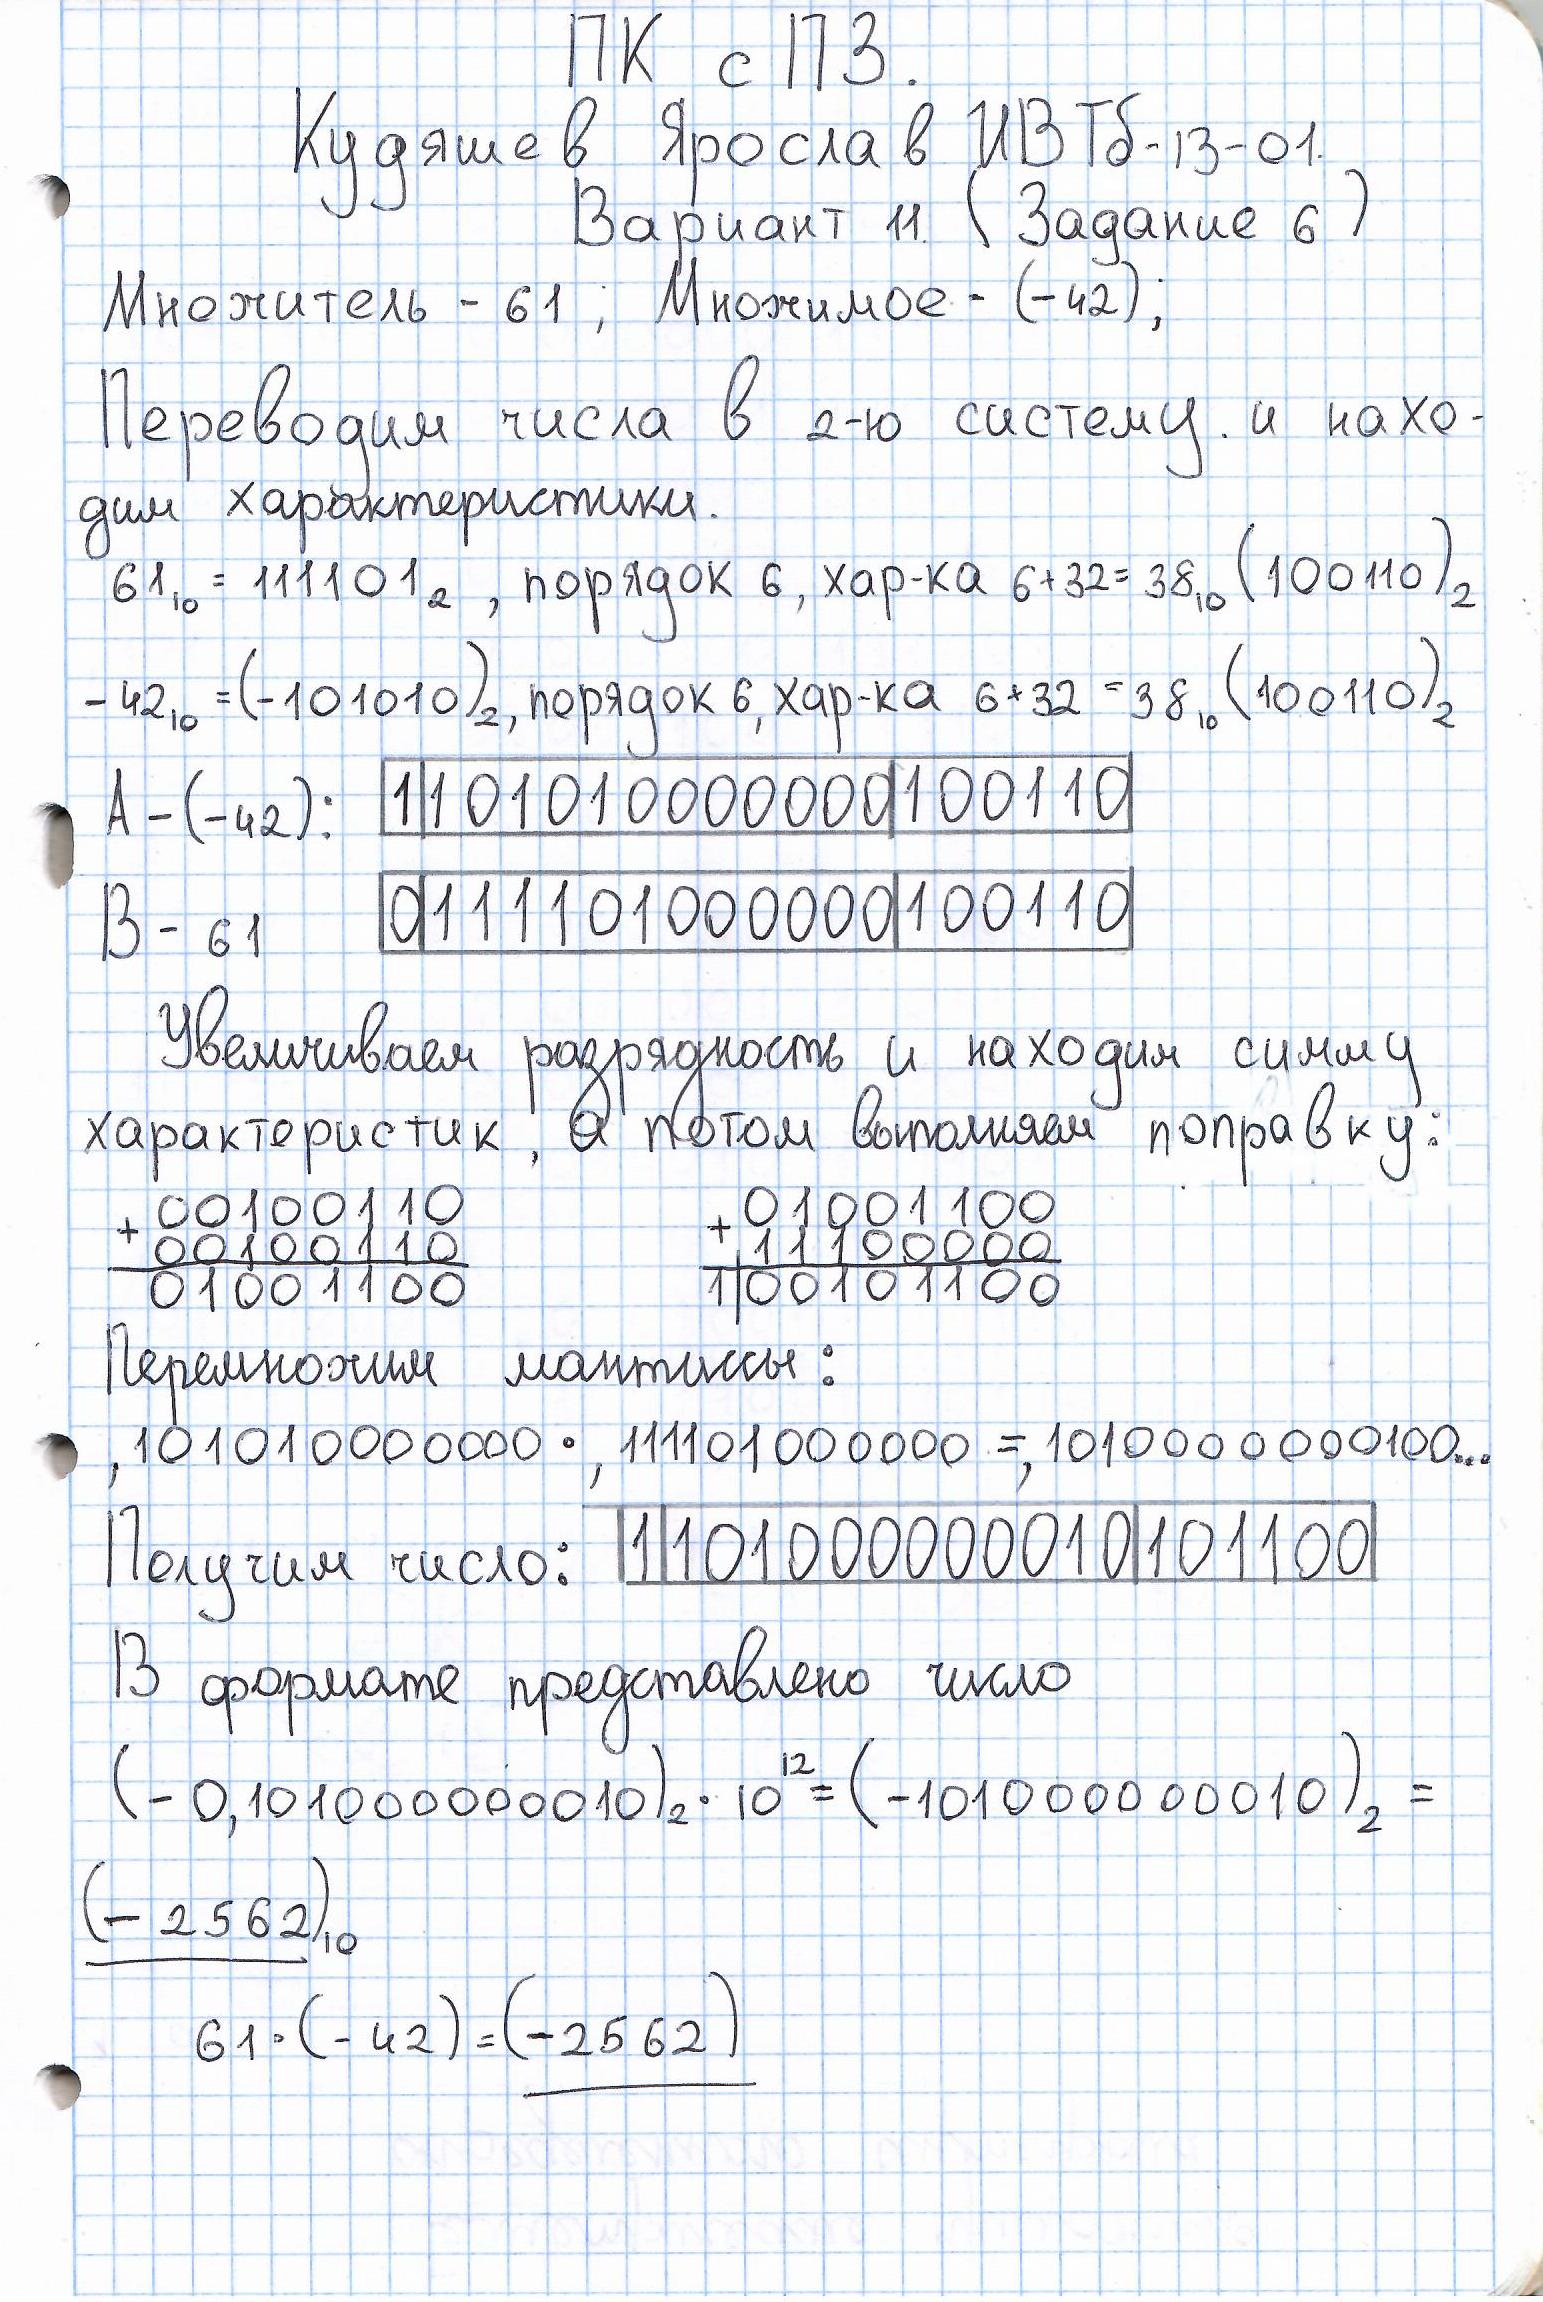 ПК с ПЗ.
Кудяшев Ярослав ИВТб-13-01.
Вариант 11. (Задание 6)
Множитель - 61; Множимое - (-42);
Переводим числа в 2-ю систему. и нахо-
дим характеристики.
61₁₀ = 111101₂, порядок 6, хар-ка 6+32=38₁₀(100110)₂
-42₁₀ =(-101010)₂, порядок 6, хар-ка 6+32=38₁₀(100110)₂
А-(-42): 1|101010000000|100110
В- 61 0|111101000000|100110
Увеличиваем разрядность и находим сумму
характеристик, а потом выполняем поправку:
00100110 01001100
+ 00100110 + 11100000
01001100 1|00101100
Перемножим мантиссы:
,101010000000·,111101000000=,1010000000100...
Получим число: 1|101000000010|101100
В формате представлено число
(-0,101000000010)₂·10¹²=(-101000000010)₂=
(-2562)₁₀
61·(-42)=(-2562)